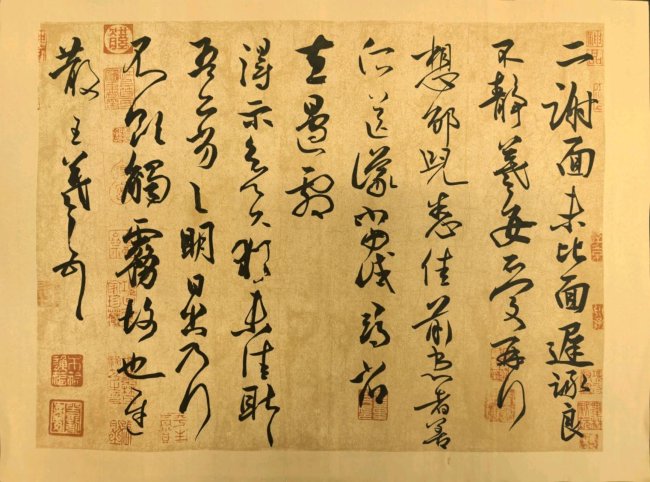 二謝面未比面遲詠良
不靜羲之女愛再拜
想邰兒悉佳前患者善
所送議當試尋省
左邊劇
得示知足下猶未佳耿耿
吾亦劣劣明日出乃行
不欲觸霧故也遲
散王羲之頓首